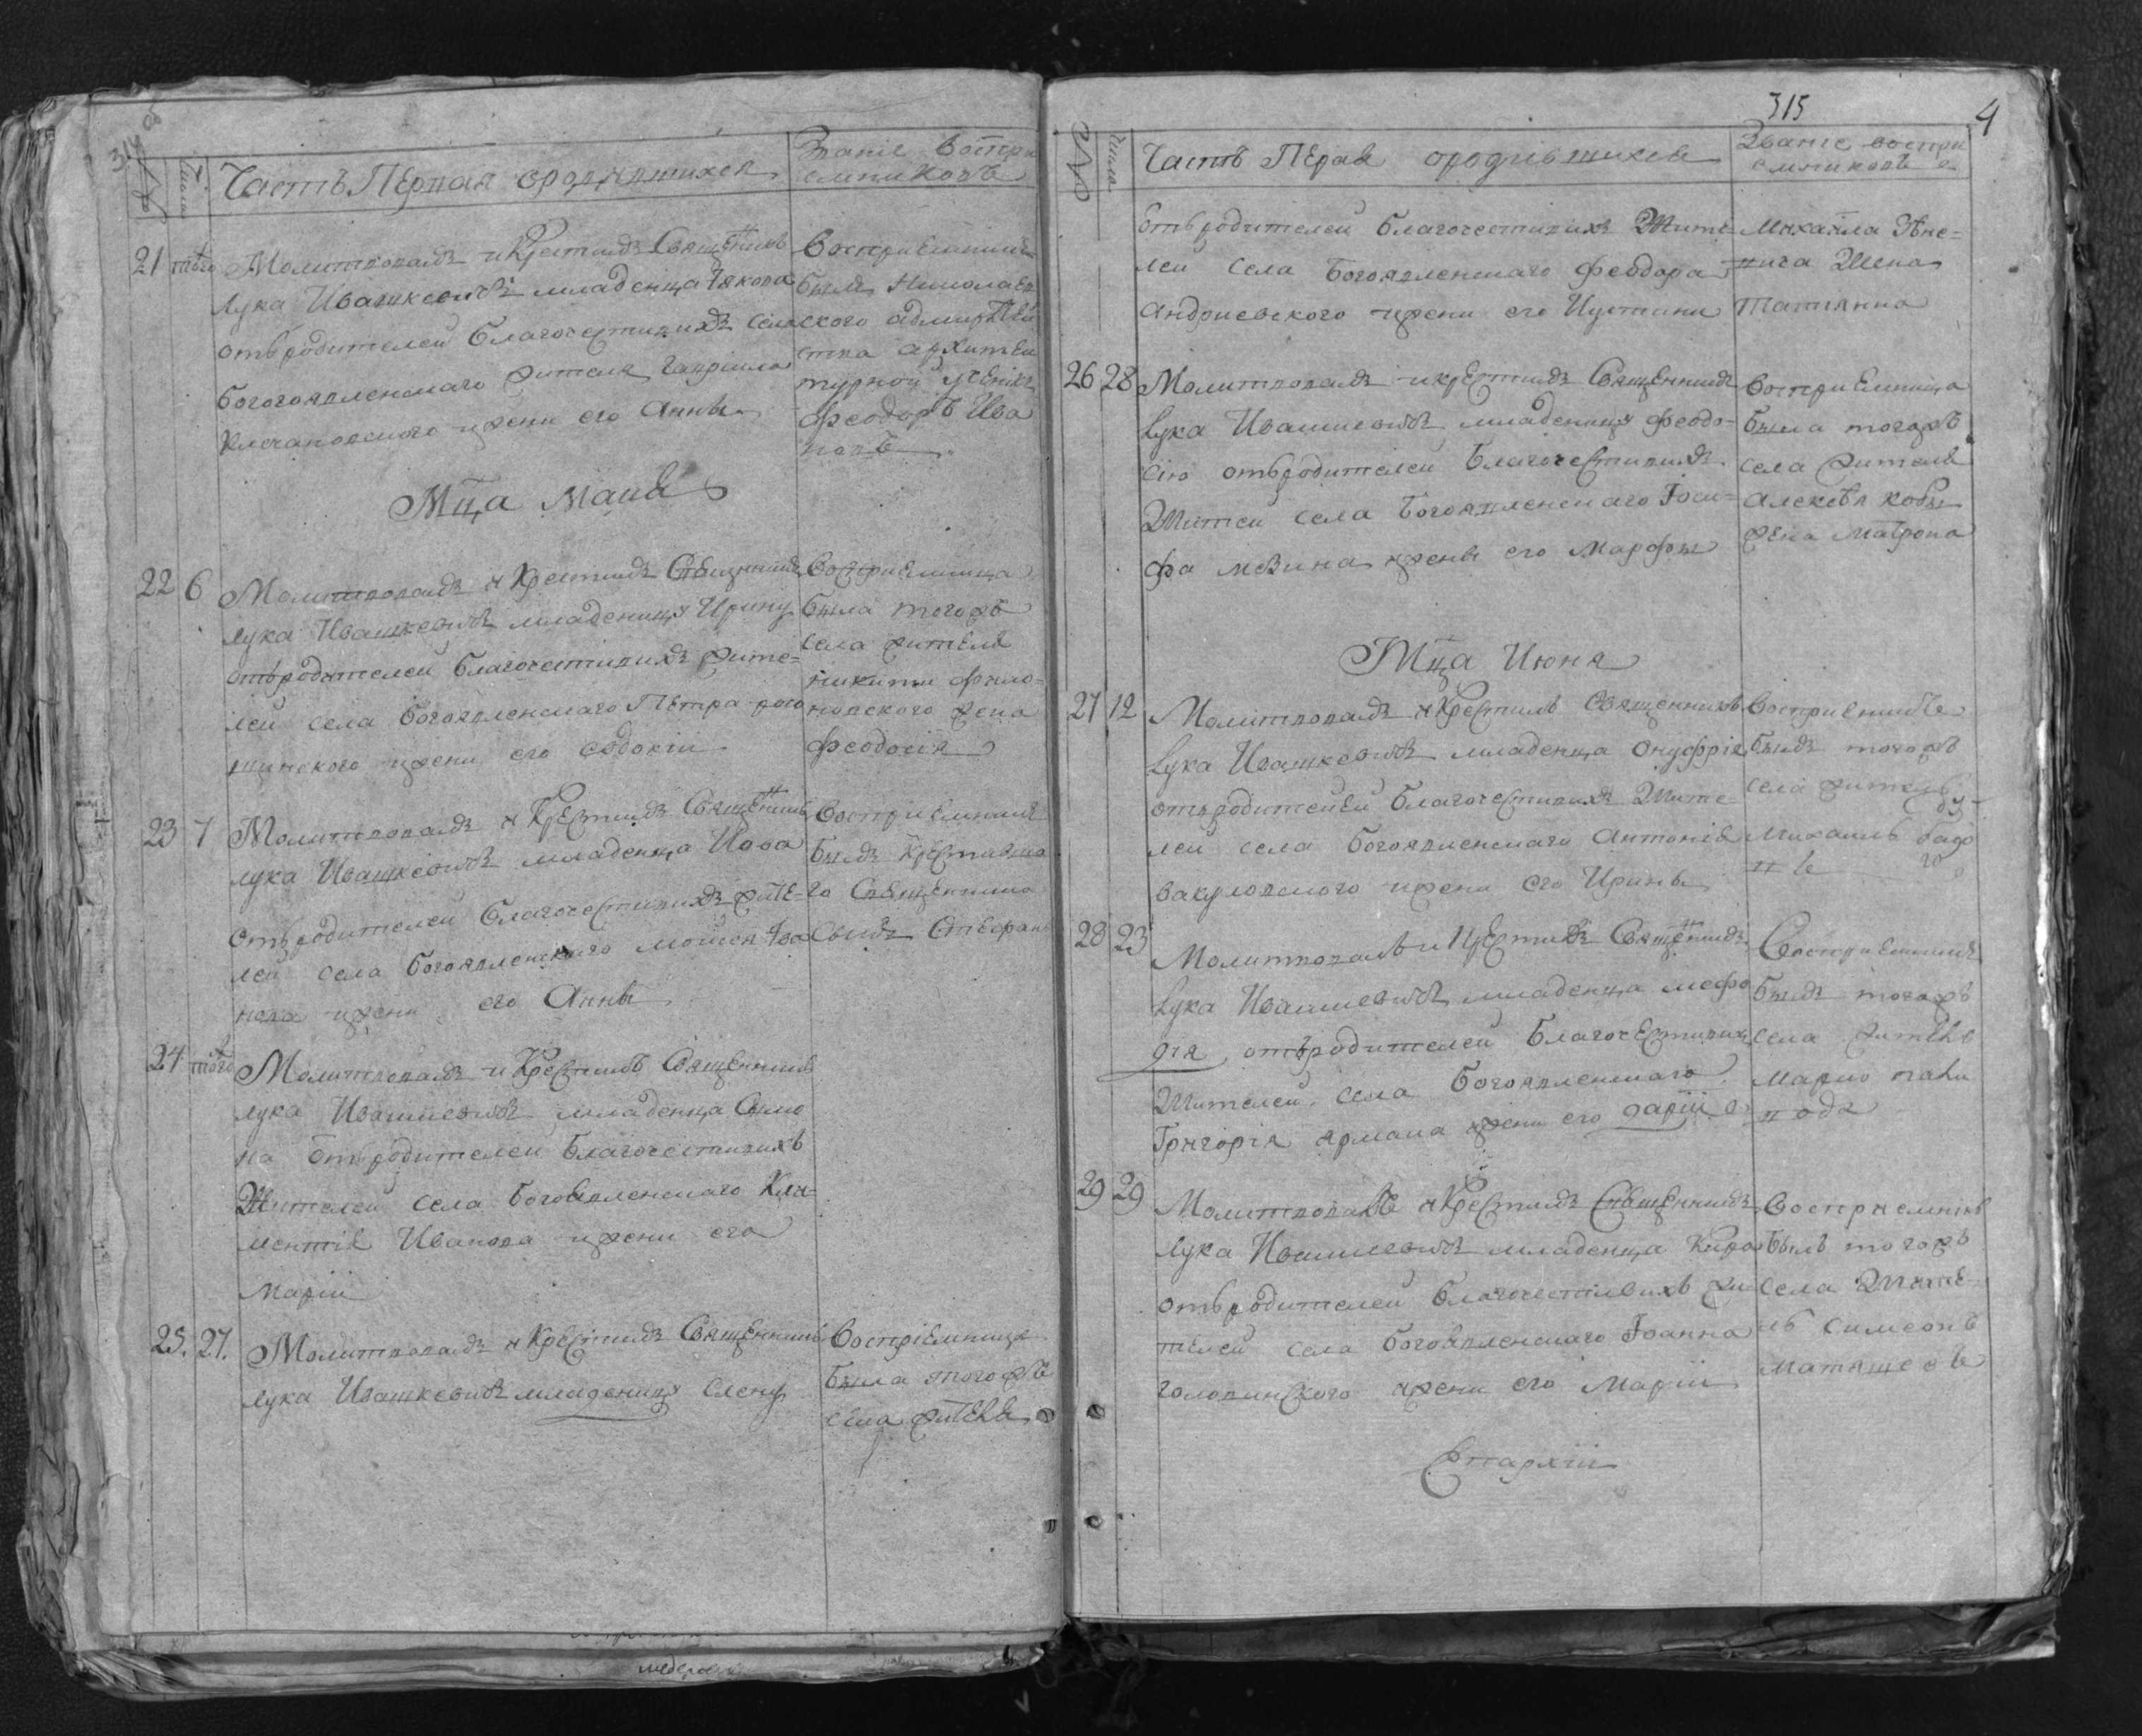 314 об
№
Число
Часть Первая ородившихся
Званіе воспри
емниковъ
21 того Молитвовалъ и Крестилъ Священникъ
Лука Ивашкевичъ младенца Іякова
отъ родителей благочестивихъ села
Богоявленскаго жителя Гавріила
и жени его Анны
Воспріемникъ
былъ Николаев
ского адмиралтей
ства архитек
турной ученикъ
Феодоръ Ива
новъ
Мца Маия
22 6 Молитвовалъ и Крестилъ Священникъ
Лука Ивашкевичъ младеницу Ирину
отъ родителей благочестивихъ жите=
лей села Богоявленскаго Петра
щинского и жени его Евдокіи
Воспріемница
была тогожъ
села жителя
Никити Фило=
новского жена
Феодосія
23 7 Молитвовалъ и Крестилъ Священникъ
Лука Ивашкевичъ младенца Иова
отъ родителей благочестивихъ жите=
лей села Богоявленского Моисея Ива
нова и жени его Анны
Воспріемникъ
былъ Крестивша
го Священника
Синъ Стефанъ
24 того Молитвовалъ и Крестилъ Священникъ
Лука Ивашкевичъ младенца Симо
на отъ родителей благочестивихъ
Жителей села Богоявленскаго Кли=
ментія Иванова и жени его
Маріи
25. 27. Молитвовалъ и Крестилъ Священникъ
Лука Ивашкевичъ младеницу Елену
Воспріемница
была тогожъ
села жителя
315
4
№
Число
Часть Перая ородившихся
Званіе воспри
емниковъ
отъ родителей благочестивихъ Жите
лей села Богоявленскаго Феодора
Андриевского и жени его Иустини
Михайла
Жена
Татиянна
26 28 Молитвовалъ и крестилъ Священникъ
Лука Ивашкевичъ младеницу Феодо=
сію отъ родителей благочестивихъ
Жителей села Богоявленскаго Іоси=
фа и жены его Марфы
Воспріемница
была тогожъ
села жителя
Алексея
жена Матрона
Мца Июня
27 12 Молитвовалъ и Крестилъ Священникъ
Лука Ивашкевичъ младенца Онуфрія
отъ родителей благочестивихъ Жите=
лей села Богоявленскаго Антонія
Вакуловского и жени его Ирины
Воспріемникъ
былъ тогожъ
села житель
Михаилъ
28 23 Молитвовалъ и Крестилъ Священникъ
Лука Ивашкевичъ младенца Мефо
дія отъ родителей благочестивихъ
Жителей села Богоявленскаго
Григорія Ярмака и жени его Даріи
Воспріемникъ
былъ тогожъ
села житель
29 29 Молитвовалъ и Крестилъ Священникъ
Лука Ивашкевичъ младенца Кира
отъ родителей благочестивихъ жи
телей села Богоявленскаго Іоанна
Головинского и жени его Маріи
Воспріемникъ
былъ тогожъ
села Жите=
ль Симеонъ
Епархіи